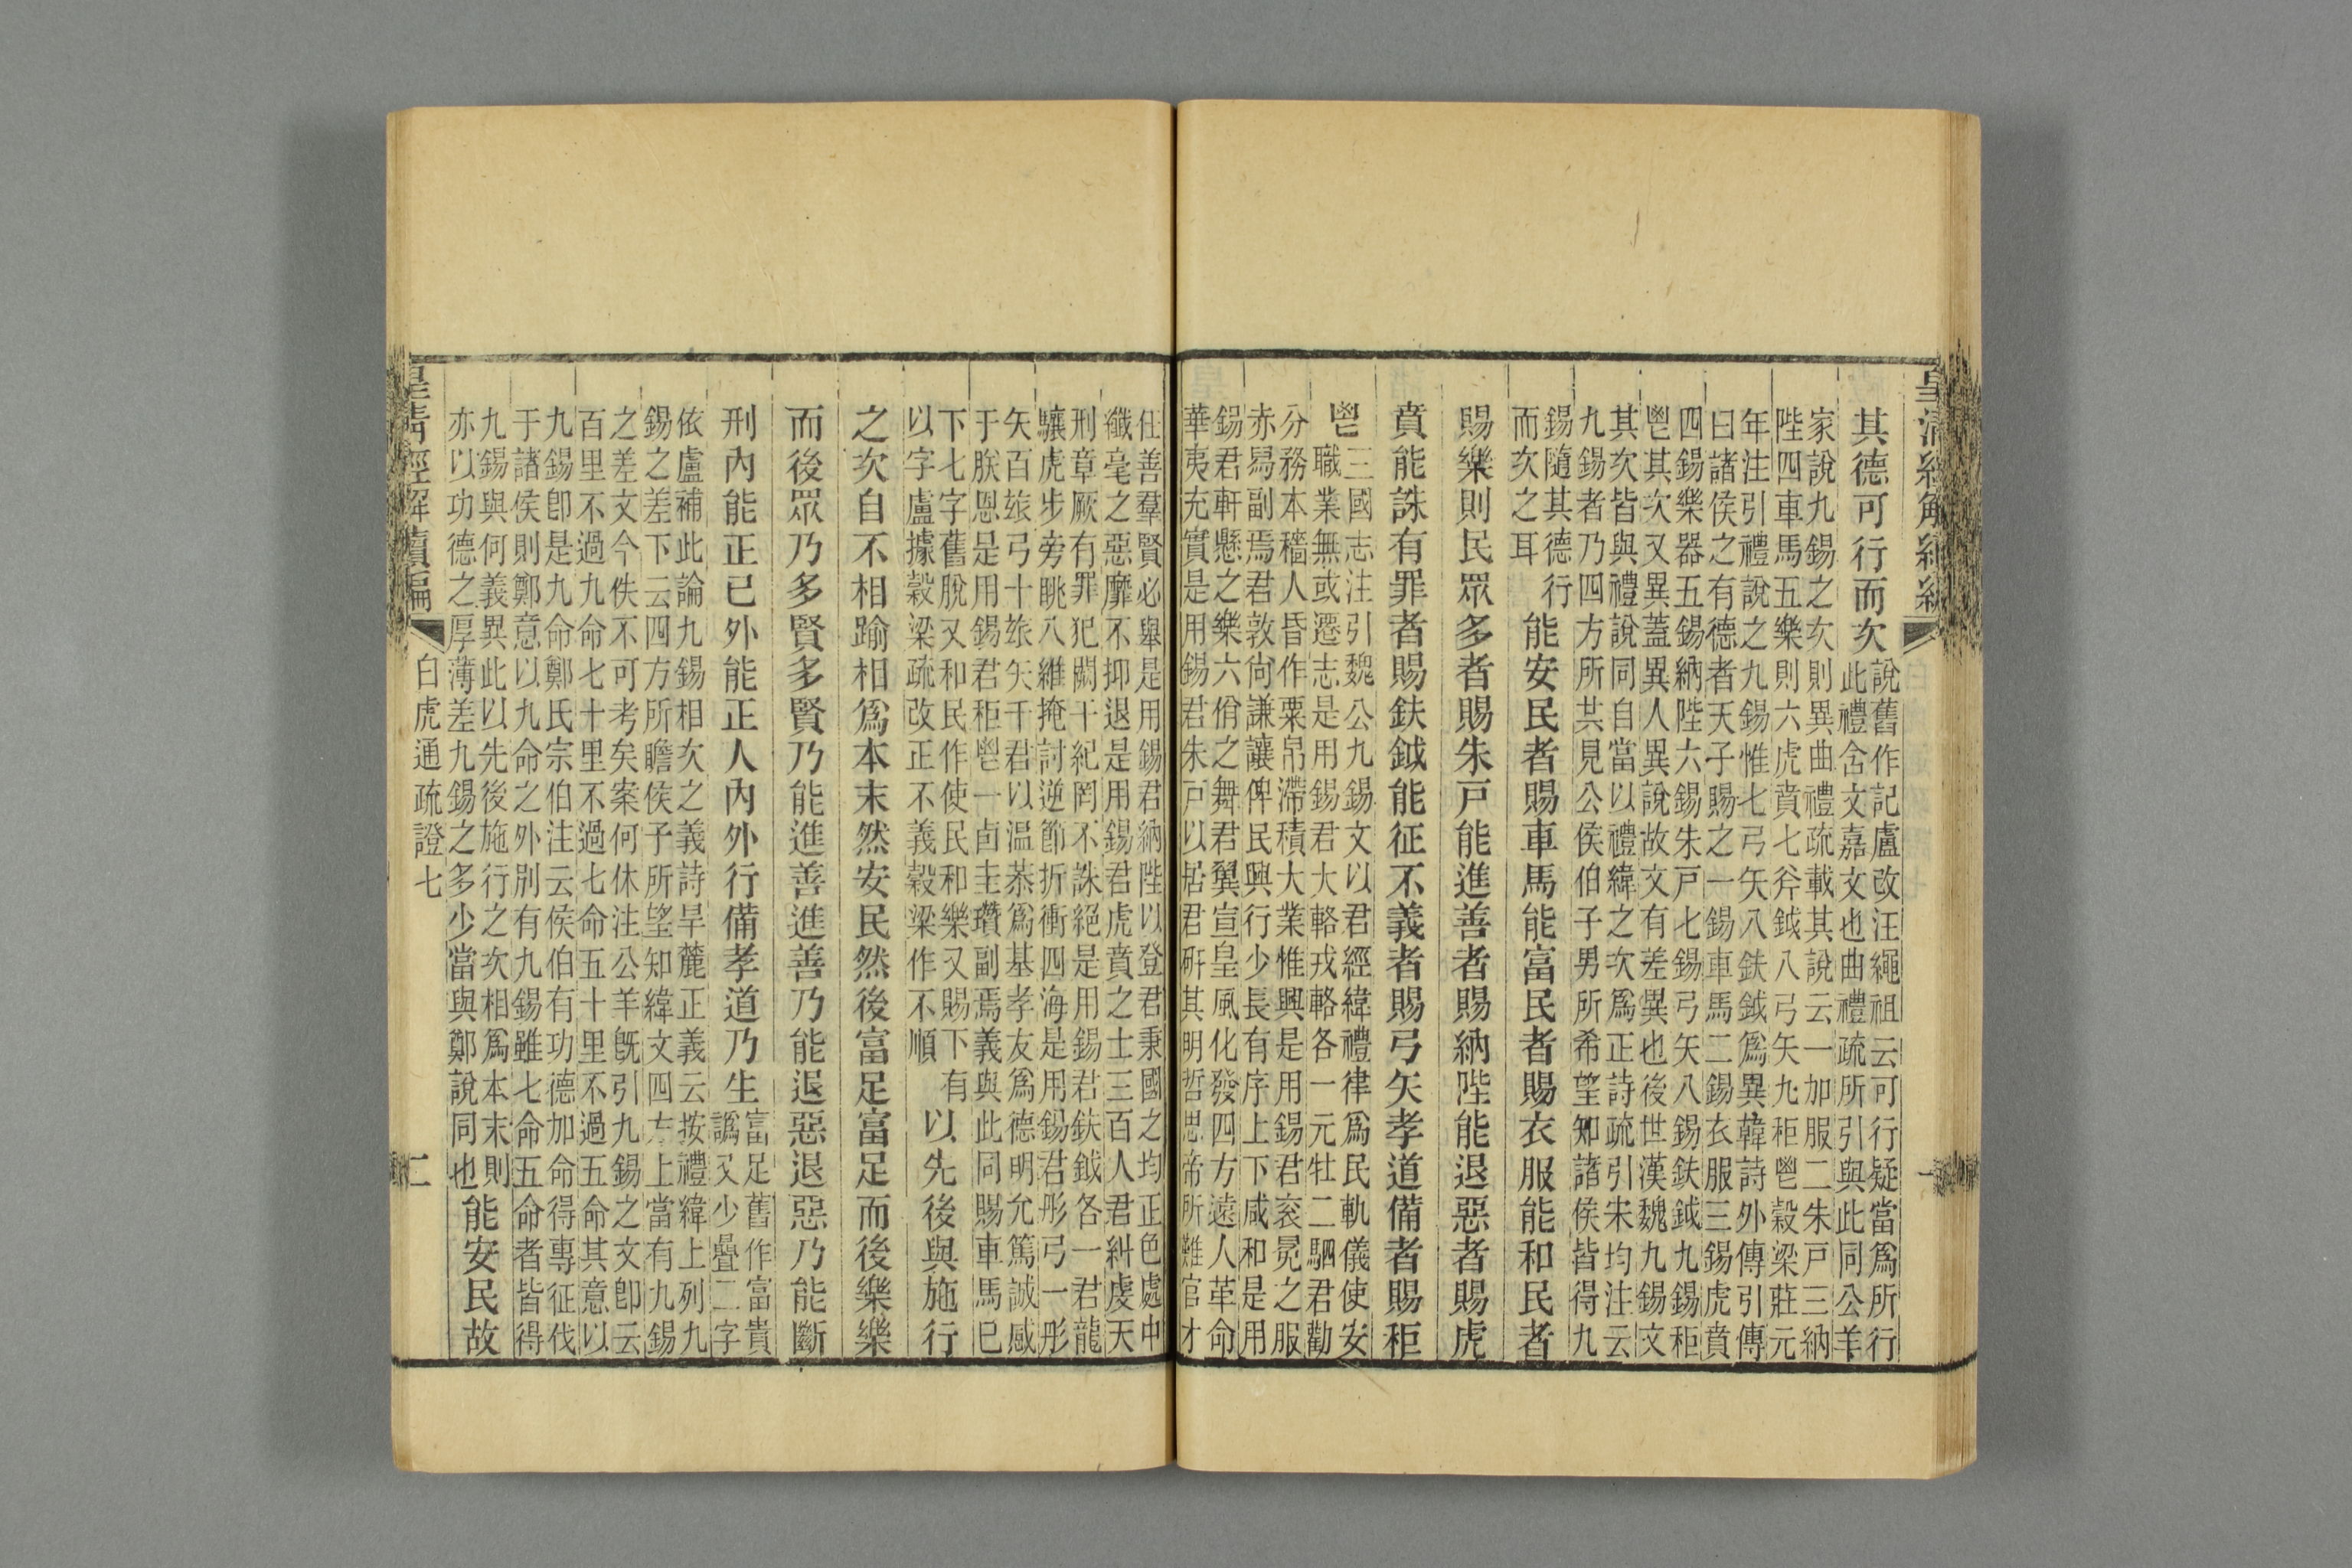 皇清經解續編
一
其德可行而次
說舊作記盧改汪繩祖云可行疑當爲所行
此禮含文嘉文也曲禮疏所引與此同公羊
家說九錫之次則異曲禮疏載其說云一加服二朱戸三納
陛四車馬五樂則六虎賁七斧鉞八弓矢九秬鬯穀梁莊元
年注引禮說之九錫惟七弓矢八鈇鉞爲異韓詩外傳引傳
曰諸侯之有德者天子賜之一錫車馬二錫衣服三錫虎賁
四錫樂器五錫納陛六錫朱戸七錫弓矢八錫鈇鉞九錫秬
鬯其次又異蓋異人異說故文有差異也後世漢魏九錫文
其次皆與禮說同自當以禮緯之次爲正詩疏引宋均注云
九錫者乃四方所其見公侯伯子男所希望知諸侯皆得九
錫隨其德行
而次之耳
能安民者賜車馬能富民者賜衣服能和民者
賜樂則民眾多者賜朱戸能進善者賜納陛能退惡者賜虎
賁能誅有罪者賜鈇鉞能征不義者賜弓矢孝道備者賜秬
鬯
三國志注引魏公九錫文以君經緯禮律爲民軌儀使安
職業無或遷志是用錫君大輅戎輅各一元牡二駟君勸
分務本穡人昏作粟帛滯積大業惟興是用錫君衮冕之服
赤舄副焉君敦尙謙讓俾民興行少長有序上下咸和是用
錫君軒懸之樂六佾之舞君翼宣皇風化發四方遠人革命
華夷充實是用錫君朱戸以居君硏其明哲思帝所難官才
任善羣賢必舉是用錫君納陛以登君秉國之均正色處中
纖毫之惡靡不抑退是用錫君虎賁之士三百人君糾虔天
刑章厥有罪犯關干紀罔不誅絕是用錫君鈇鉞各一君龍
驤虎步旁眺八維掩討逆節折衝四海是用錫君彤弓一彤
矢百玈弓十玈矢千君以温恭爲基孝友爲德明允篤誠感
于朕恩是用錫君秬鬯一卣圭瓚副焉義與此同賜車馬已
下七字舊脫又和民作使民和樂又賜下有
以字盧據穀梁疏改正不義穀梁作不順
以先後與施行
之次自不相踰相爲本末然安民然後富足富足而後樂樂
而後眾乃多賢多賢乃能進善進善乃能退惡退惡乃能斷
刑內能正已外能正人內外行備孝道乃生
富足舊作富貴
譌又少疊二字
依盧補此論九錫相次之義詩旱麓正義云按禮緯上列九
錫之差下云四方所瞻侯子所望知緯文四方上當有九錫
之差文今佚不可考矣案何休注公羊既引九錫之文卽云
百里不過九命七十里不過七命五十里不過五命其意以
九錫卽是九命鄭氏宗伯注云侯伯有功德加命得專征伐
于諸侯則鄭意以九命之外別有九錫雖七命五命者皆得
九錫與何義異此以先後施行之次相爲本末則
亦以功德之厚薄差九錫之多少當與鄭說同也
能安民故
皇清經解續編
白虎通疏證七
二